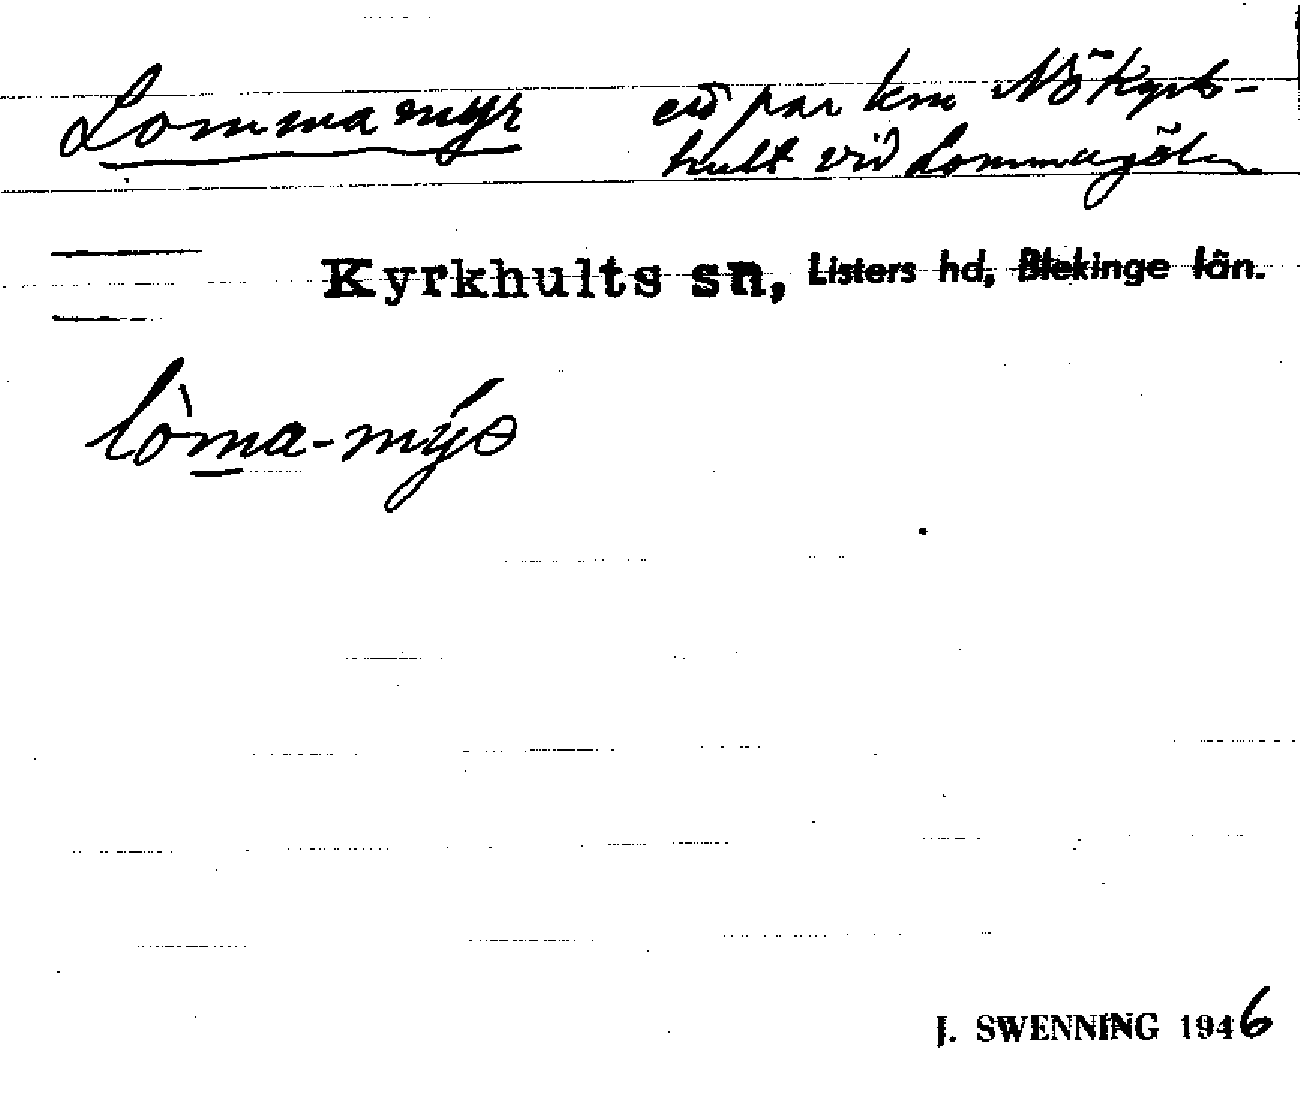 Lommamyr ett par km NÖ Kyrk-
hult vid Lommagölen
Kyrkhults sn, Listers hd, Blekinge län.
J. SWENNING 1946